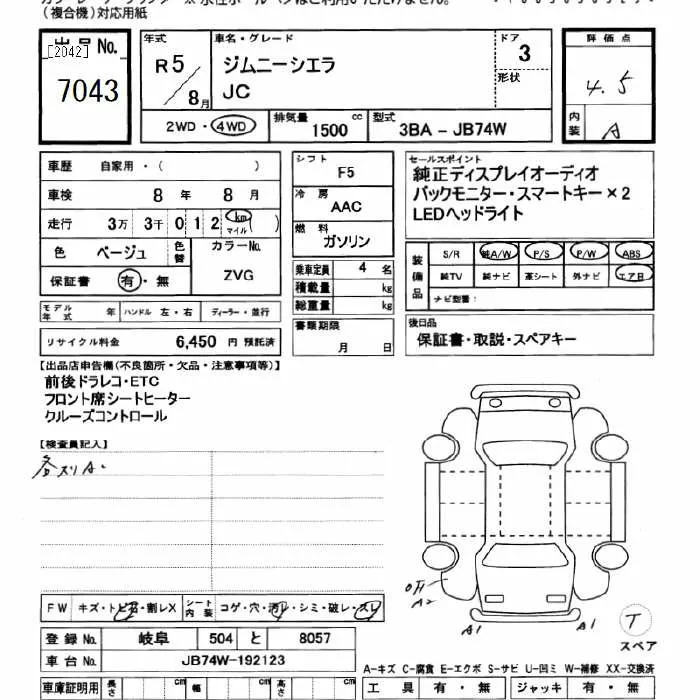 (複合機)対応用紙
出品No.
[2042]
7043
年式
R5/8月
車名・グレード
ジムニーシエラ
JC
ドア
3
形状
評価点
4.5
内装
A
2WD・4WD
排気量
1500 cc
型式
3BA - JB74W
車歴 自家用・( )
車検 8年 8月
走行 3万 3千 0 1 2 km マイル ( )
色 ベージュ 色替 カラーNo.
保証書 有・無 ZVG
モデル年式 年 ハンドル 左・右 ディーラー・並行
リサイクル料金 6,450 円 預託済
シフト F5
冷房 AAC
燃料 ガソリン
乗車定員 4 名
積載量 kg
総重量 kg
書類期限
月 日
セールスポイント
純正ディスプレイオーディオ
バックモニター・スマートキー×2
LEDヘッドライト
装備品
S/R 純A/W P/S P/W ABS
純TV 純ナビ 革シート 外ナビ エアB
ナビ型番:
後日品
保証書・取説・スペアキー
【出品店申告欄(不良箇所・欠品・注意事項等)】
前後ドラレコ・ETC
フロント席シートヒーター
クルーズコントロール
【検査員記入】
各スリA.
A2
A1
A1
T
スペア
FW キズ・トビ石・割レX シート内装 コゲ・穴・汚レ・シミ・破レ・スレ
登録No. 岐阜 504 と 8057
車台No. JB74W-192123
車庫証明用 長さ cm 幅 cm 高さ cm
A-キズ C-腐食 E-エクボ S-サビ U-凹ミ W-補修 XX-交換済
工具 有・無 ジャッキ 有・無